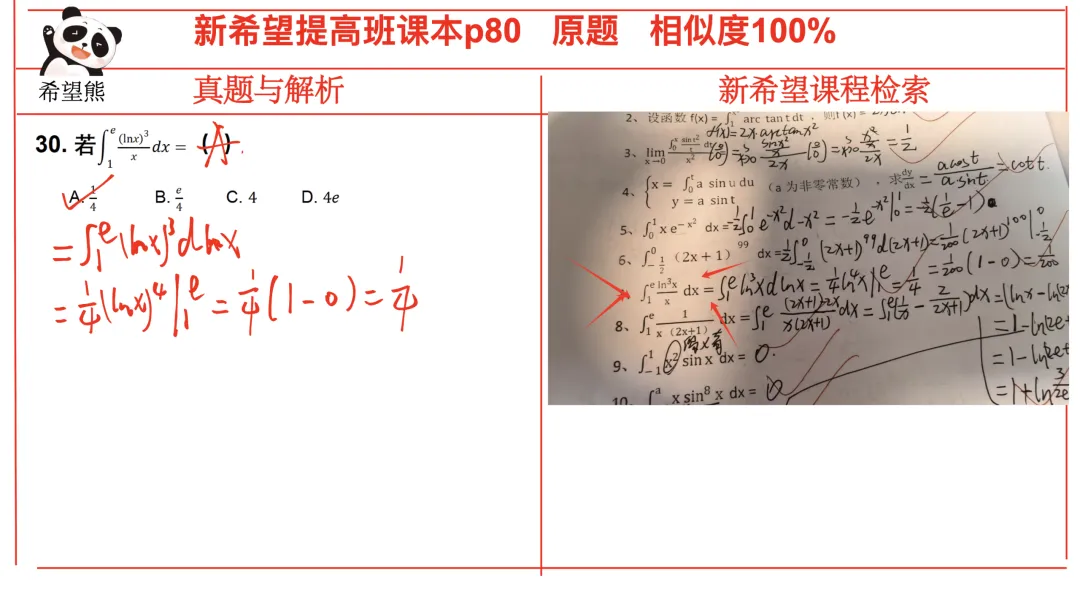 新希望提高班课本p80 原题 相似度100%
希望熊
真题与解析
30. 若∫₁ᵉ (lnx)³/x dx = ( A ).
A. 1/4 B. e/4 C. 4 D. 4e
= ∫₁ᵉ (lnx)³ d lnx
= 1/4 (lnx)⁴ |₁ᵉ = 1/4 (1-0) = 1/4
新希望课程检索
2、设函数 f(x) = arc tan t dt ，则f
f'(x)=2x arctan x²
3、lim x→0
4、{x = ∫₀ᵗ a sin u du （a 为非零常数），求 dy/dx = a cos t / a sin t = cot t.
y = a sin t
5、∫₀¹ x e^(−x²) dx = -1/2 ∫₀¹ e^(-x²) d-x² = -1/2 e^(-x²) |₀¹ = -1/2 (1/e -1)
6、∫₋½⁰ (2x+1)⁹⁹ dx = 1/2 ∫₋½⁰ (2x+1)⁹⁹ d(2x+1) = 1/200 (2x+1)¹⁰⁰ |₋½⁰
= 1/200 (1-0) = 1/200
∫₁ᵉ ln³x/x dx = ∫₁ᵉ ln³x d lnx = 1/4 ln⁴x |₁ᵉ = 1/4
8、∫₁ᵉ 1/(x (2x+1)) dx = ∫₁ᵉ ((2x+1)-2x)/(x(2x+1)) dx = ∫₁ᵉ (1/x - 2/(2x+1)) dx
9、∫₋₁¹ x² sin x dx = 0.
10、x sin⁸ x dx = 0